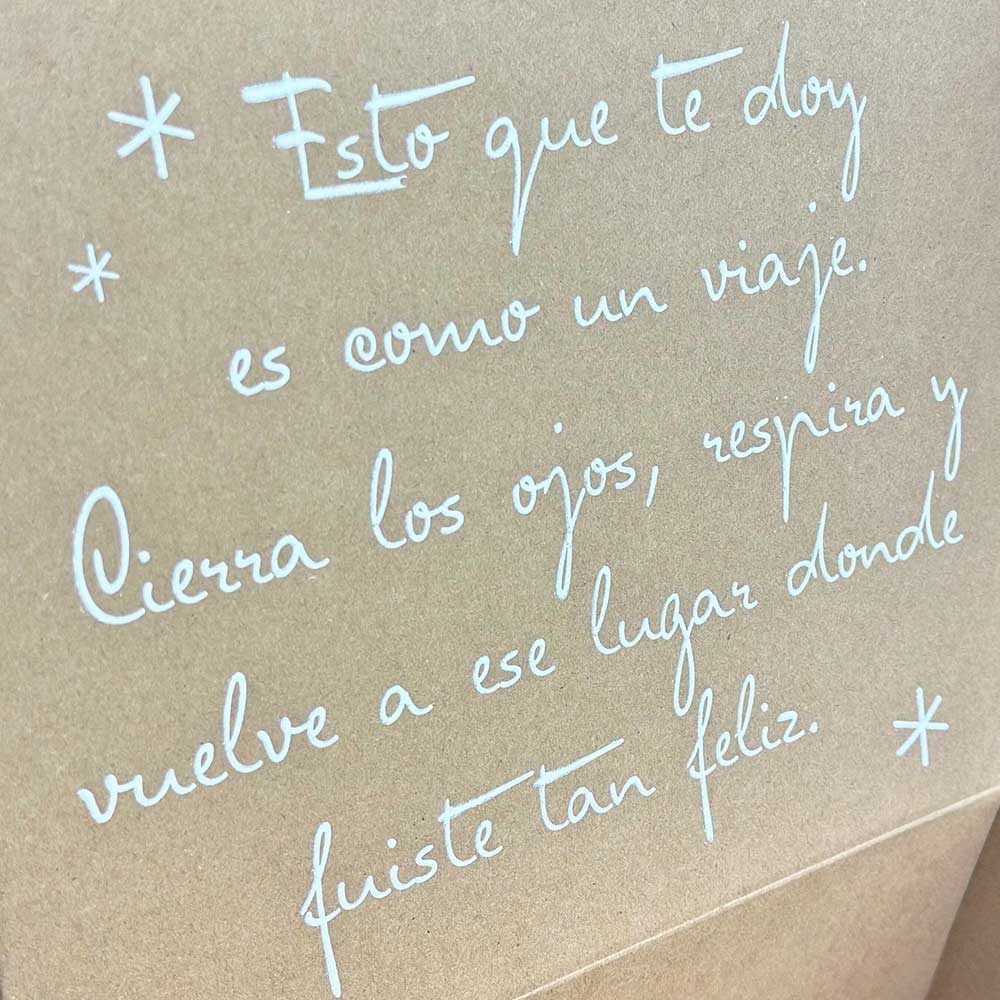 * Esto que te doy
* es como un viaje.
Cierra los ojos, respira y
vuelve a ese lugar donde
fuiste tan feliz. *